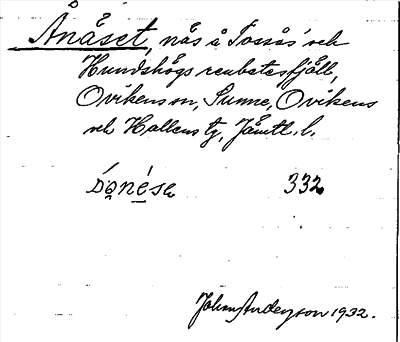 Ånåset, nås å Tossås' och
Hundshögs renbetesfjäll,
Ovikens sn, Sunne, Ovikens
och Hallens tg, Jämtl. l.
332
Johan Anderson 1932.